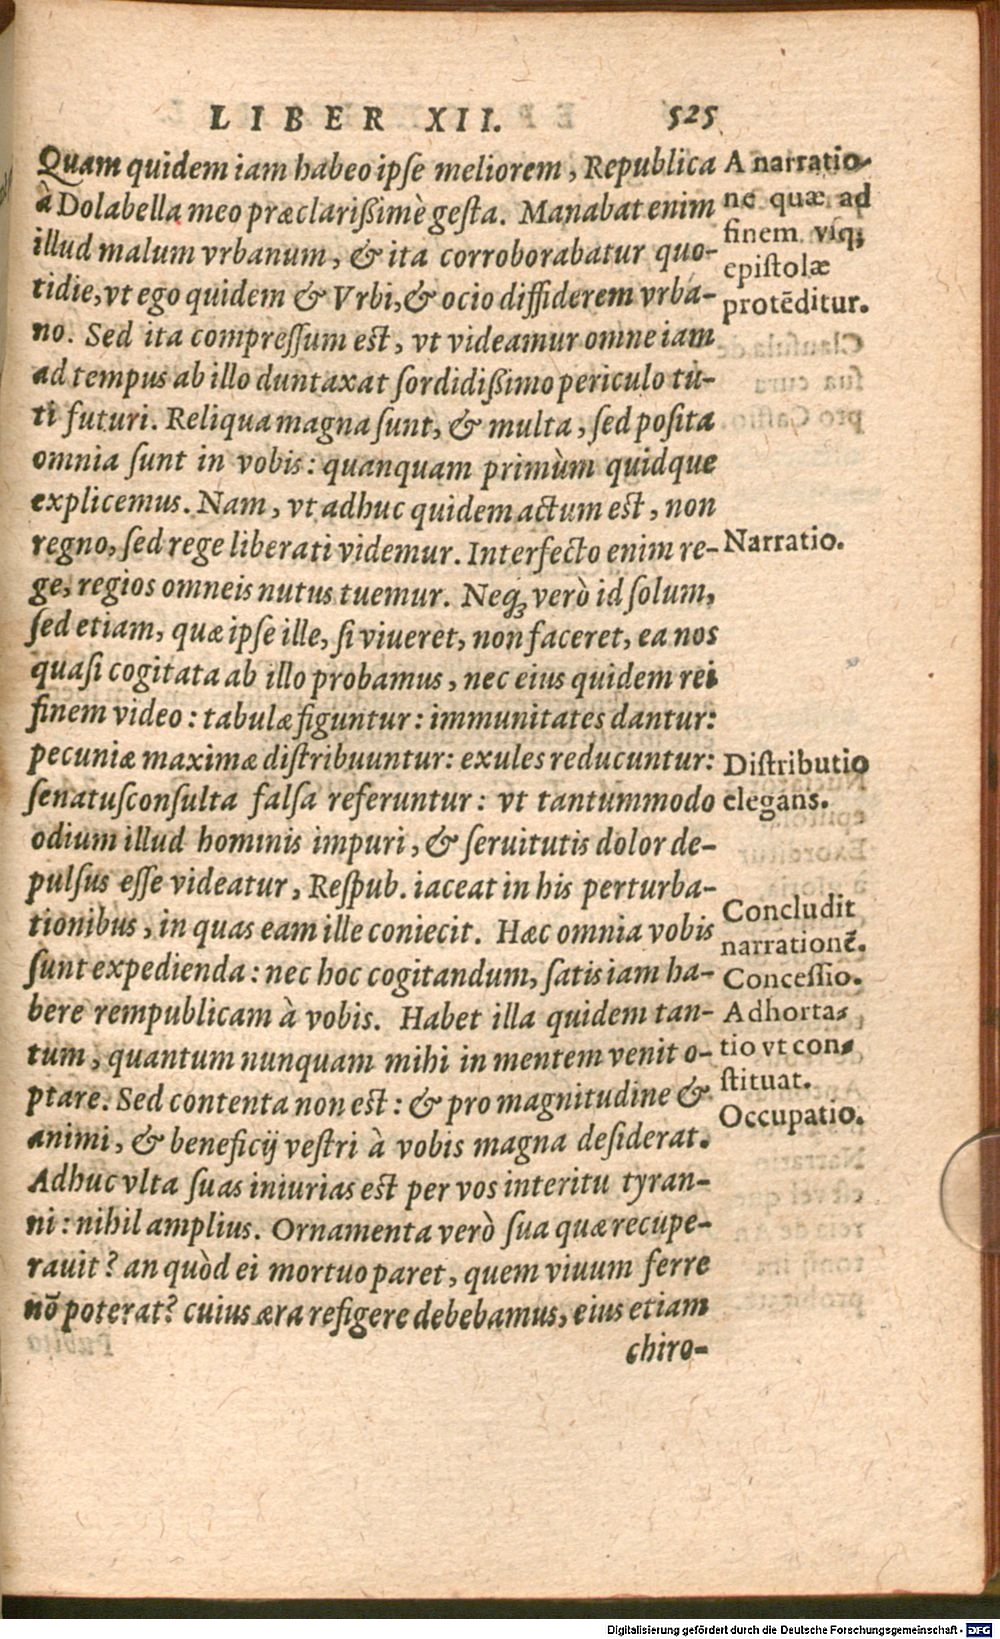 LIBER XII. 525
Quam quidem iam habeo ipſe meliorem, Republica
à Dolabella meo præclarißimè geſta. Manabat enim
illud malum vrbanum, & ita corroborabatur quo-
tidie, vt ego quidem & Vrbi, & ocio diffiderem vrba-
no. Sed ita compreſſum eſt, vt videamur omne iam
ad tempus ab illo duntaxat ſordidißimo periculo tu-
ti futuri. Reliqua magna ſunt, & multa, ſed poſita
omnia ſunt in vobis: quanquam primùm quidque
explicemus. Nam, vt adhuc quidem actum eſt, non
regno, ſed rege liberati videmur. Interfecto enim re-
ge, regios omneis nutus tuemur. Neq; verò id ſolum,
ſed etiam, quæ ipſe ille, ſi viueret, non faceret, ea nos
quaſi cogitata ab illo probamus, nec eius quidem rei
finem video: tabulæ figuntur: immunitates dantur:
pecuniæ maximæ diſtribuuntur: exules reducuntur:
ſenatuſconſulta falſa referuntur: vt tantummodo
odium illud hominis impuri, & ſeruitutis dolor de-
pulſus eſſe videatur, Reſpub. iaceat in his perturba-
tionibus, in quas eam ille coniecit. Hæc omnia vobis
ſunt expedienda: nec hoc cogitandum, ſatis iam ha-
bere rempublicam à vobis. Habet illa quidem tan-
tum, quantum nunquam mihi in mentem venit o-
ptare. Sed contenta non eſt: & pro magnitudine &
animi, & beneficij veſtri à vobis magna deſiderat.
Adhuc vlta ſuas iniurias eſt per vos interitu tyran-
ni: nihil amplius. Ornamenta verò ſua quæ recupe-
rauit? an quòd ei mortuo paret, quem viuum ferre
nō poterat? cuius æra refigere debebamus, eius etiam
chiro-
A narratio-
ne quæ ad
finem vſq;
epiſtolæ
protēditur.
Narratio.
Diſtributio
elegans.
Concludit
narrationē.
Conceſſio.
Adhorta-
tio vt con-
ſtituat.
Occupatio.
Digitalisierung gefördert durch die Deutsche Forschungsgemeinschaft - DFG